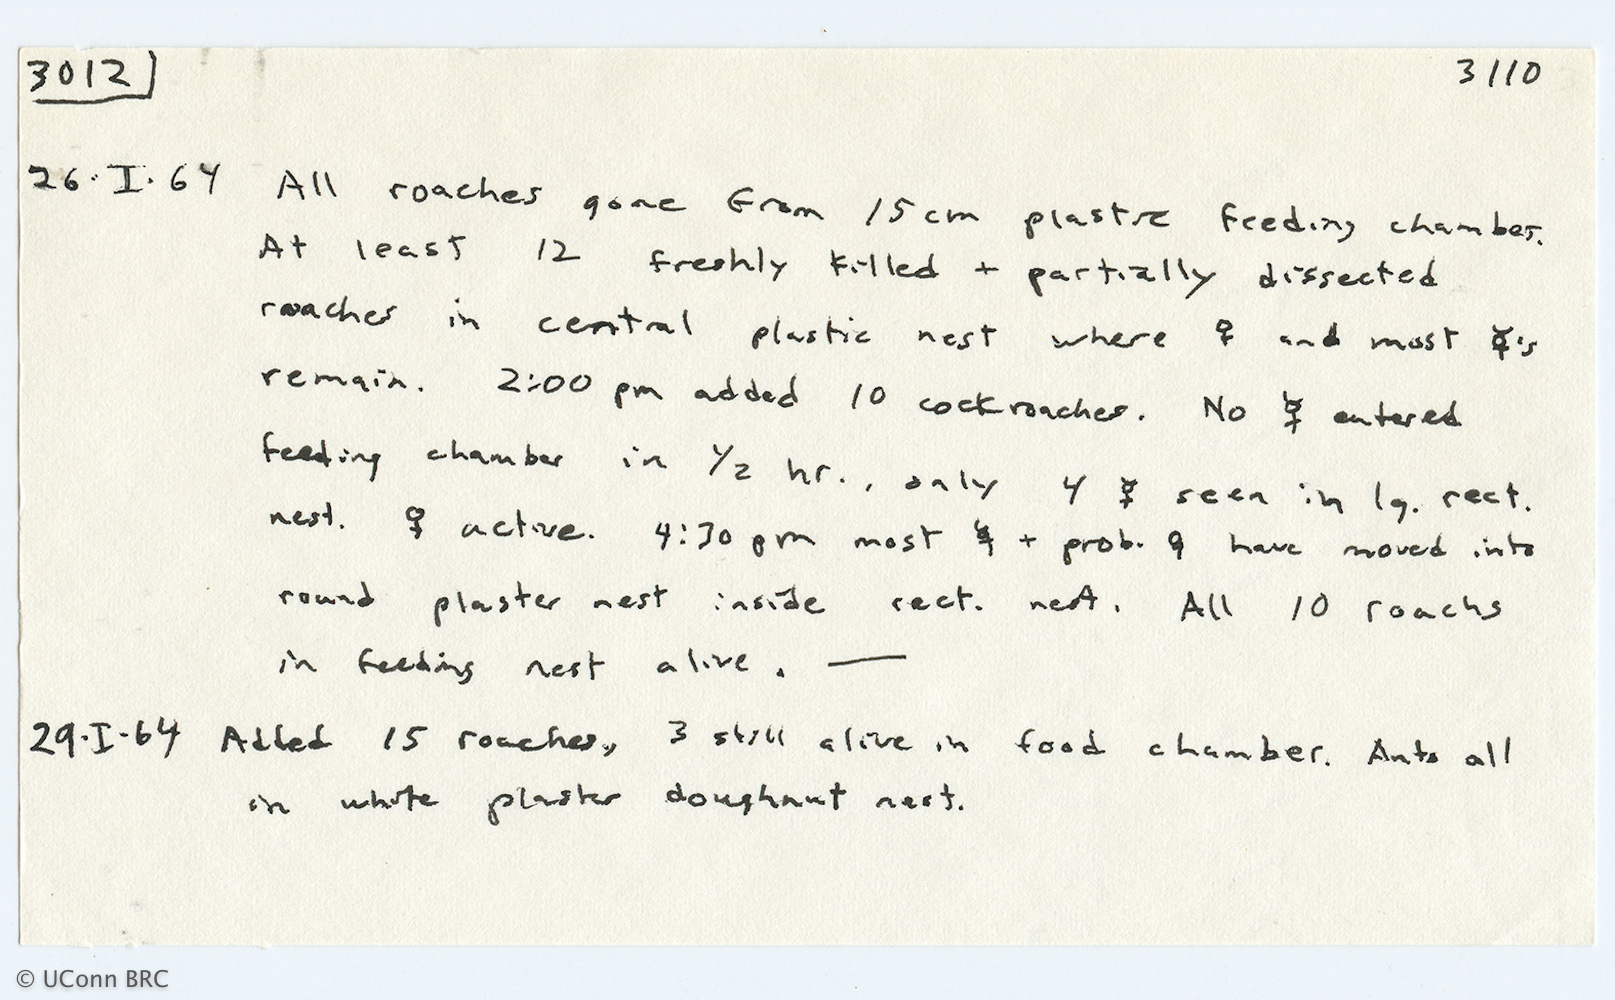 3012 3110
26·I·64 All roaches gone from 15cm plastic feeding chamber.
At least 12 freshly killed + partially dissected
roaches in central plastic nest where ♀ and most ☿'s
remain. 2:00 pm added 10 cockroaches. No ☿ entered
feeding chamber in 1/2 hr., only 4 ☿ seen in lg. rect.
nest. ♀ active. 4:30 pm most ☿ + prob. ♀ have moved into
round plaster nest inside rect. nest. All 10 roachs
in feeding nest alive. —
29·I·64 Added 15 roaches, 3 still alive in food chamber. Ants all
in white plaster doughnut nest.
© UConn BRC